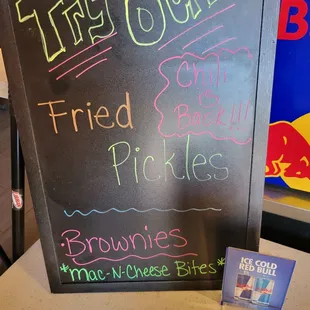 Try Our
Chili
is
Back!!!
Fried
Pickles
Brownies
*Mac-N-Cheese Bites*
ICE COLD
RED BULL
B